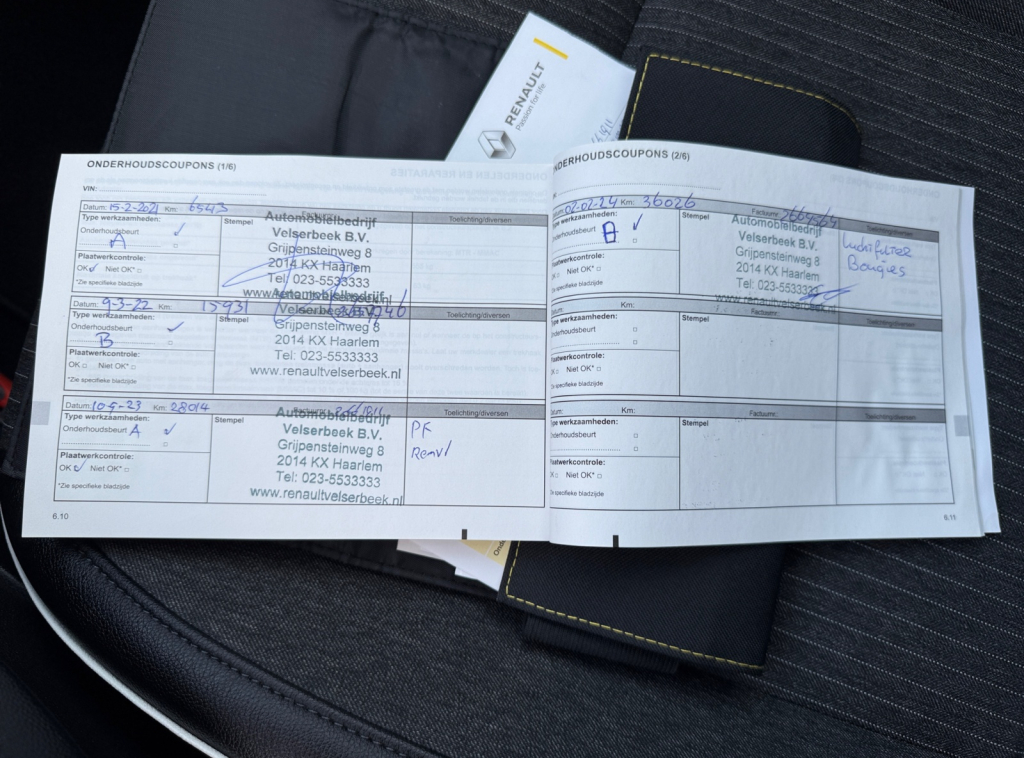 RENAULT
Passion for life
ONDERHOUDSCOUPONS (1/6)
VIN:
Datum: 15-2-2021 Km: 6543
Type werkzaamheden:
Stempel
Toelichting/diversen
Onderhoudsbeurt ✓
A
Plaatwerkcontrole:
OK ✓ Niet OK*
*Zie specifieke bladzijde
Automobielbedrijf
Velserbeek B.V.
Grijpensteinweg 8
2014 KX Haarlem
Tel: 023-5533333
www.renaultvelserbeek.nl
Datum: 9-3-22 Km: 15931
Type werkzaamheden:
Stempel
Toelichting/diversen
Onderhoudsbeurt ✓
B
Plaatwerkcontrole:
OK Niet OK*
*Zie specifieke bladzijde
Automobielbedrijf
Velserbeek B.V.
Grijpensteinweg 8
2014 KX Haarlem
Tel: 023-5533333
www.renaultvelserbeek.nl
Km: 28014
Type werkzaamheden:
Stempel
Toelichting/diversen
Onderhoudsbeurt A ✓
Plaatwerkcontrole:
OK ✓ Niet OK*
*Zie specifieke bladzijde
Automobielbedrijf
Velserbeek B.V.
Grijpensteinweg 8
2014 KX Haarlem
Tel: 023-5533333
www.renaultvelserbeek.nl
PF
6.10
ONDERHOUDSCOUPONS (2/6)
Datum: 02-02-24 Km: 36026
Factuurnr:
Type werkzaamheden:
Stempel
Toelichting/diversen
Onderhoudsbeurt ✓
Plaatwerkcontrole:
Niet OK*
*Zie specifieke bladzijde
Automobielbedrijf
Velserbeek B.V.
Grijpensteinweg 8
2014 KX Haarlem
Tel: 023-5533333
www.renaultvelserbeek.nl
Luchtfilter
Bougies
Km:
Factuurnr:
Toelichting/diversen
Type werkzaamheden:
Stempel
Onderhoudsbeurt
Plaatwerkcontrole:
Niet OK*
Zie specifieke bladzijde
Km:
Factuurnr:
Toelichting/diversen
Type werkzaamheden:
Stempel
Onderhoudsbeurt
Plaatwerkcontrole:
Niet OK*
Zie specifieke bladzijde
6.11